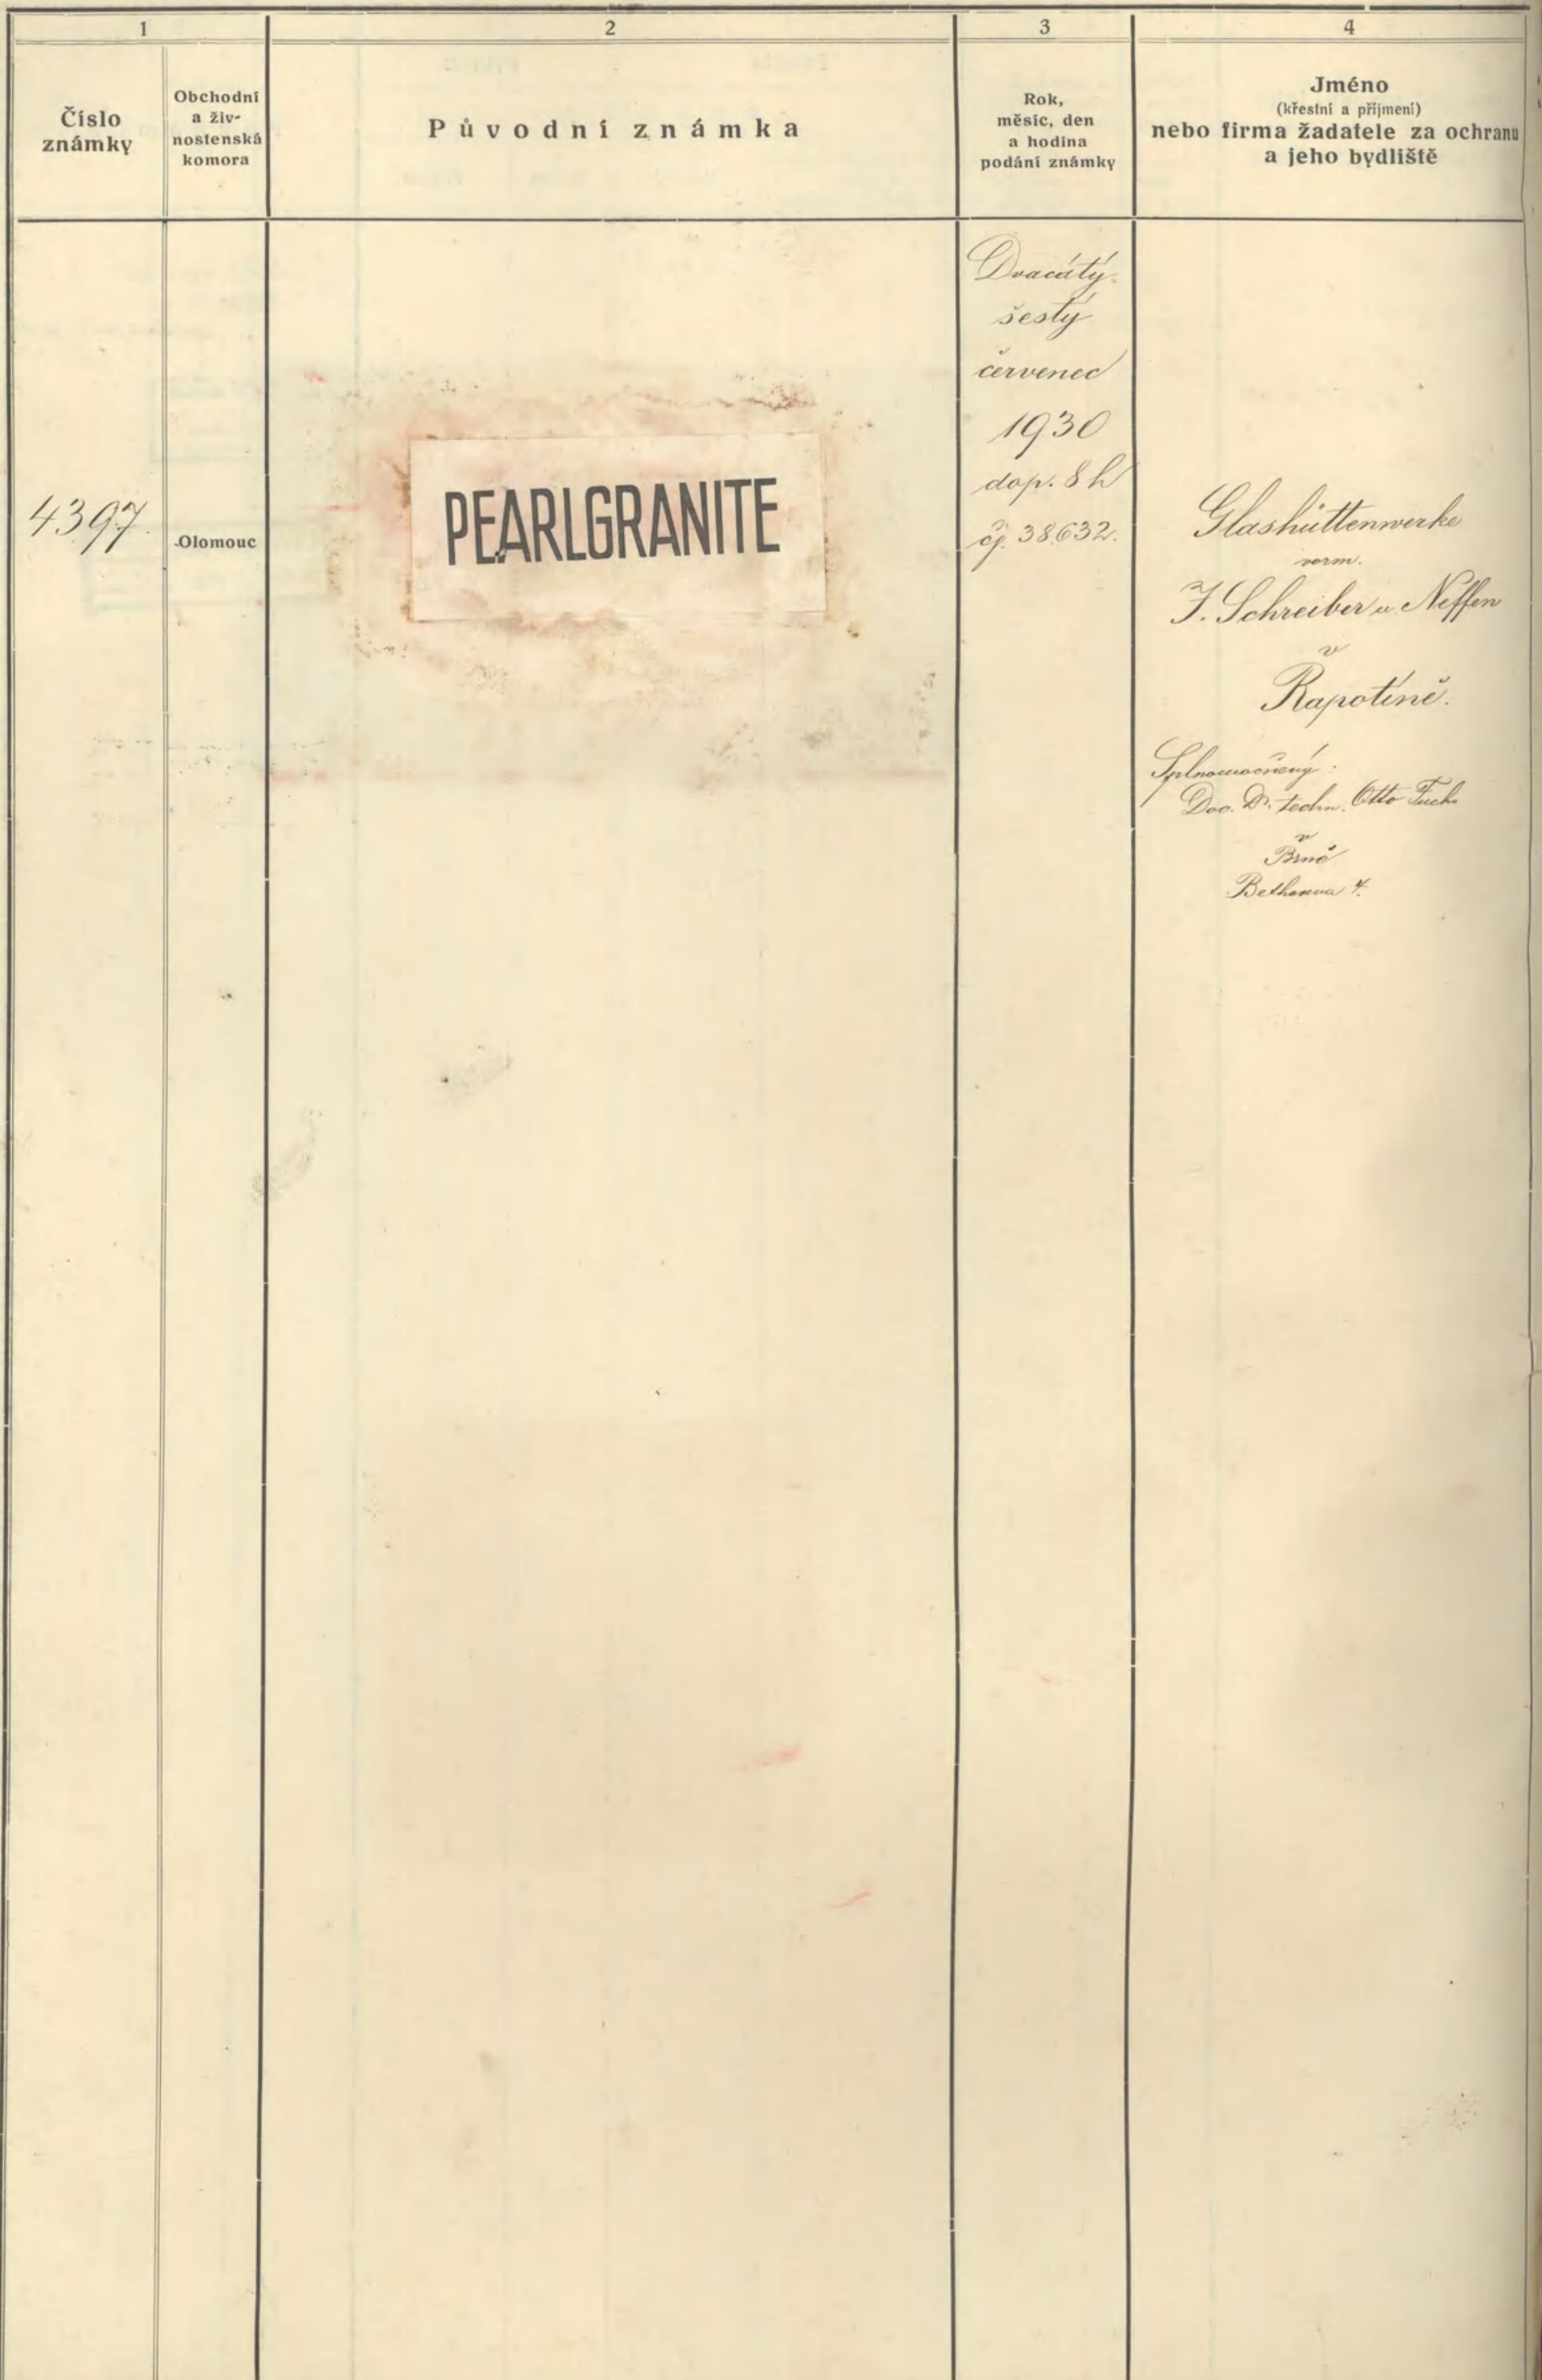 1
2
3
4
Číslo
známky
Obchodní
a živ-
nostenská
komora
Původní známka
Rok,
měsíc, den
a hodina
podání známky
Jméno
(křestní a příjmení)
nebo firma žadatele za ochranu
a jeho bydliště
4397.
Olomouc
PEARLGRANITE
Dvacátý
šestý
červenec
1930
dop. 8 h
čj. 38.632.
Glashüttenwerke
vorm.
J. Schreiber u. Neffen
v
Rapotíně.
Splnomocněný:
Doc. Dr. techn. Otto Fuchs
v
Brně